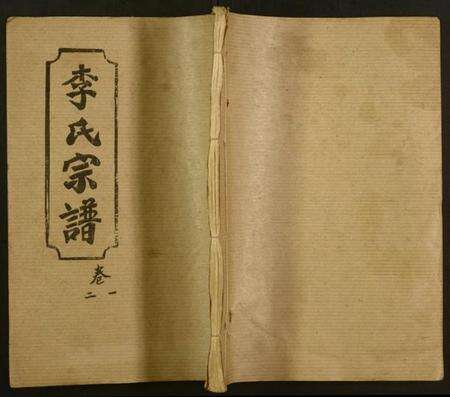 李氏宗譜
卷
一二